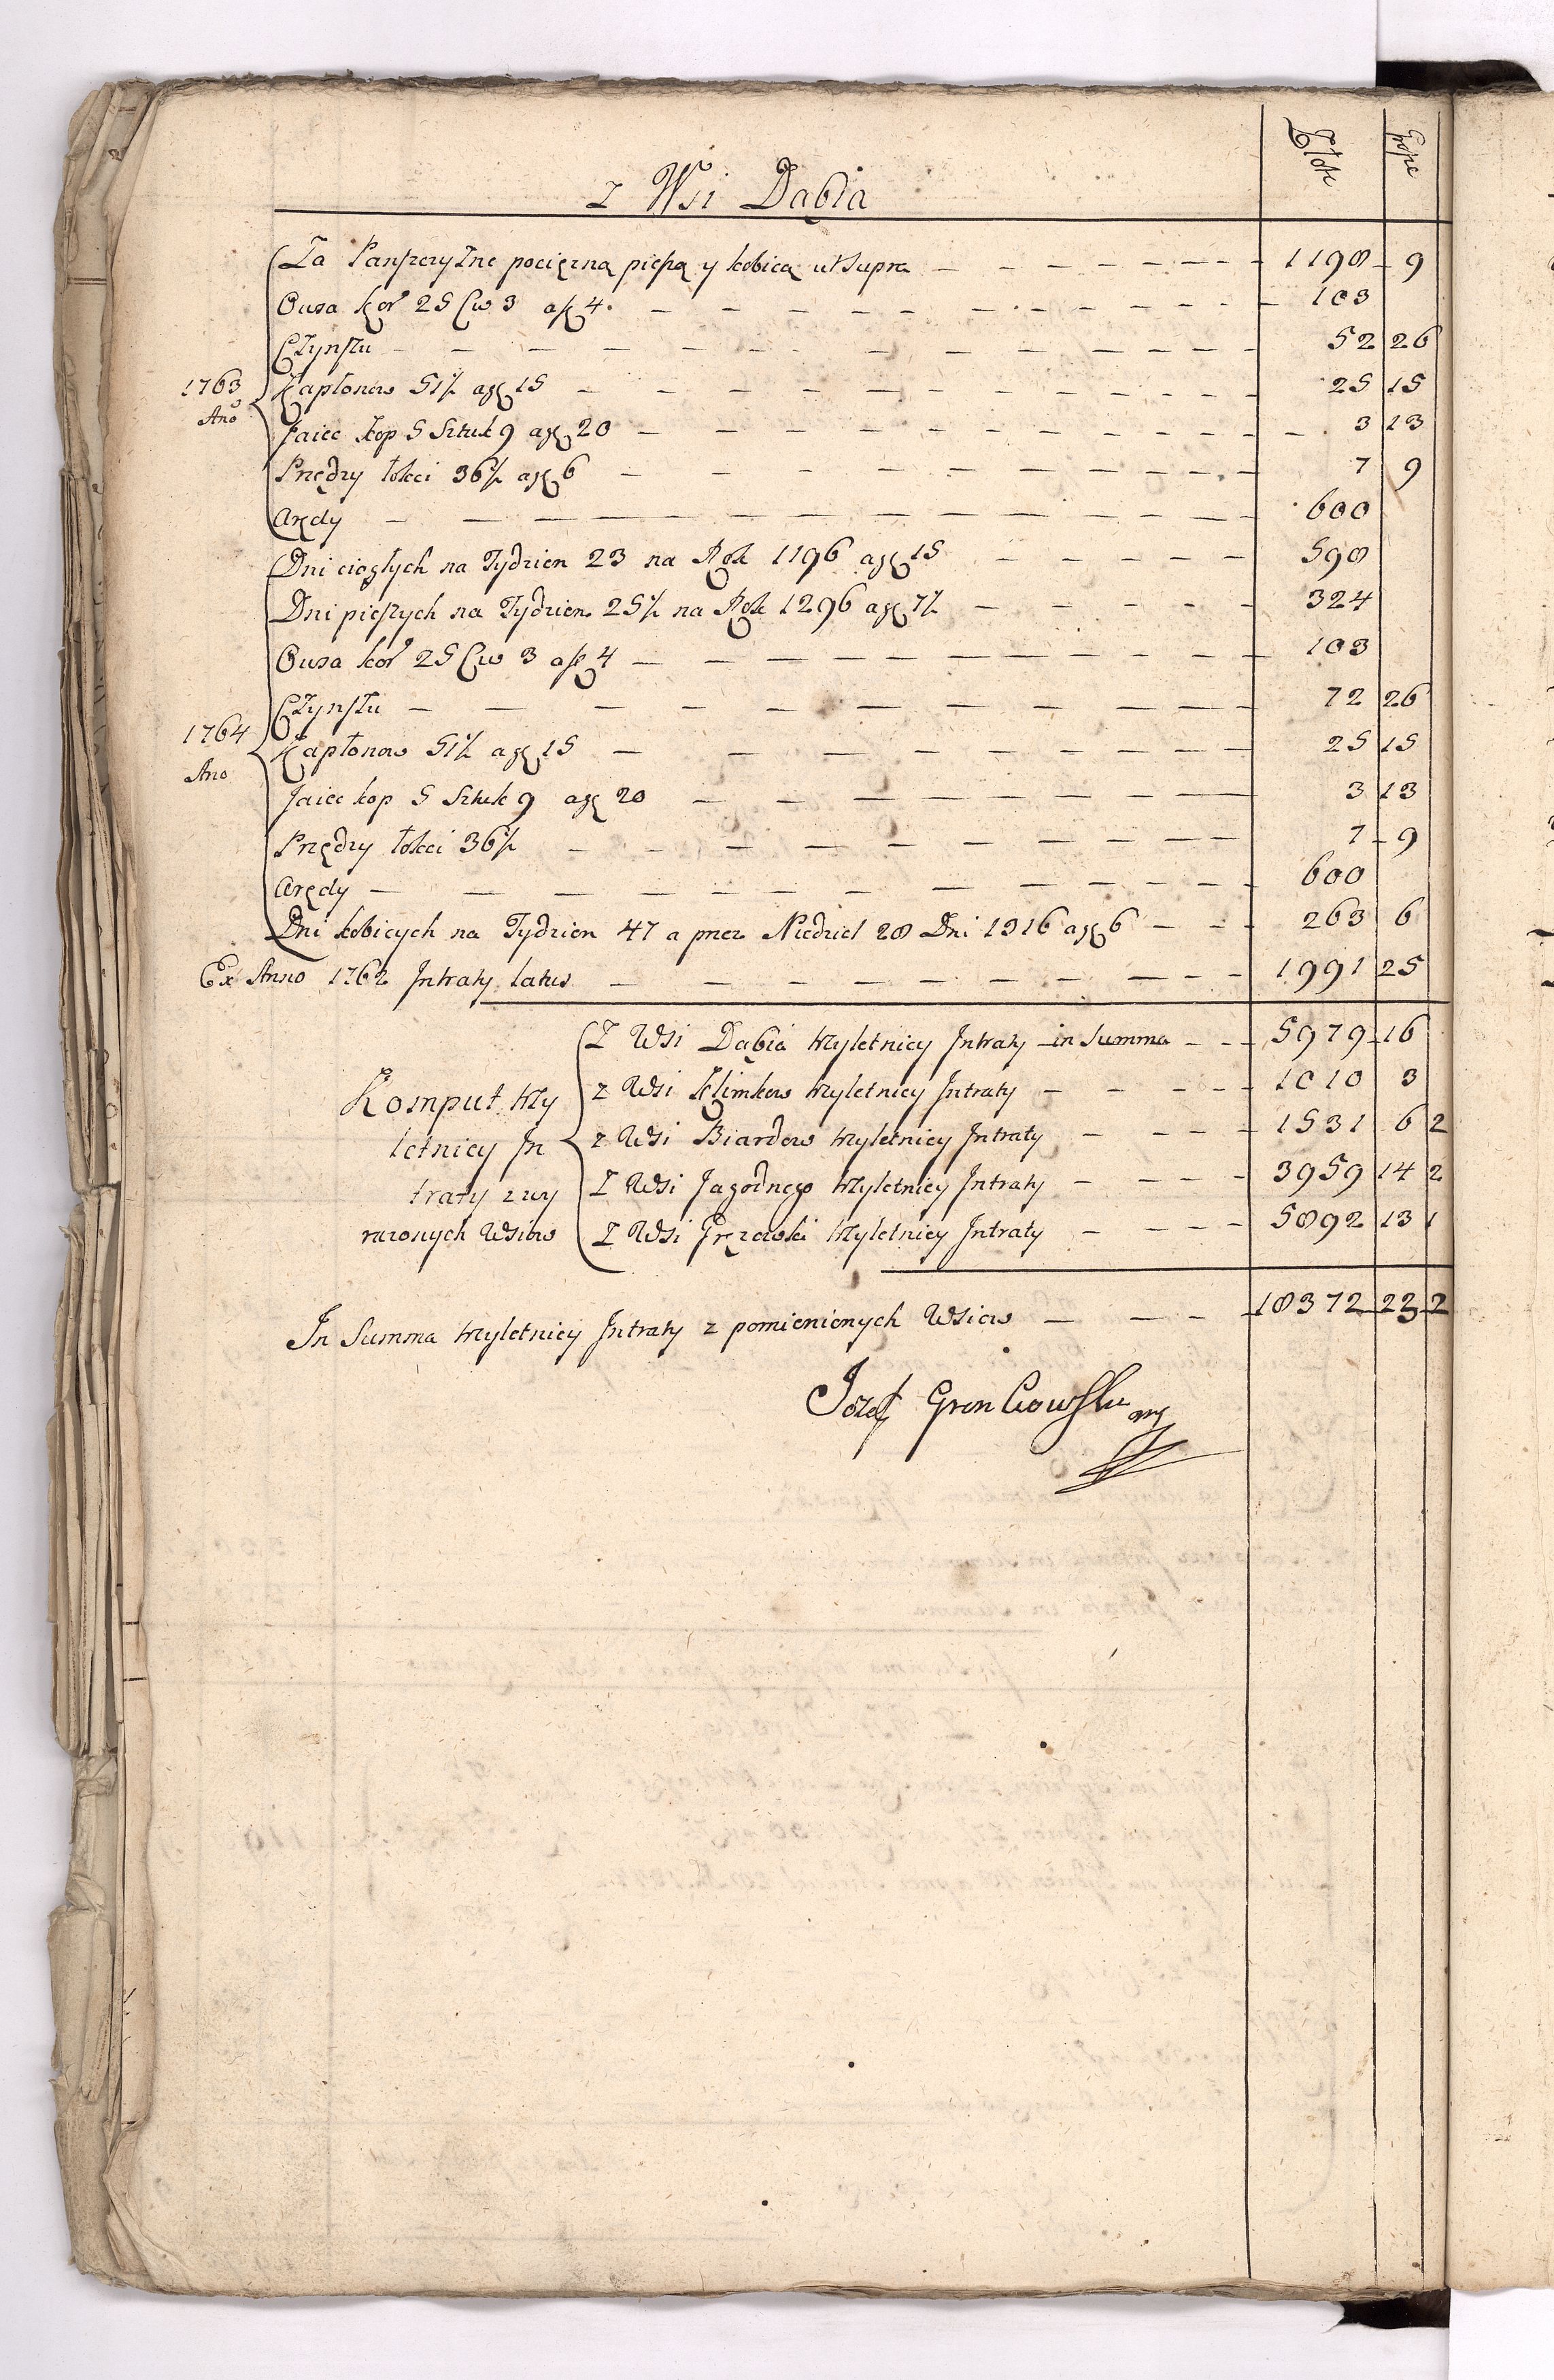 Złote grosze
z Wsi Dąbia
Za Panszczyznę pociężną pieszą y kobicą ut supra 1198 9
Owsa kor 25 Cw 3 a zł 4 103
Czynszu 52 26
1763 Kapłonow 51½ a gr 15 25 15
Ano Jaiec kop 5 Sztuk 9 a gr 20 3 13
Przędzy łokci 36½ a gr 6 7 9
Arędy 600
Dni ciągłych na Tydzien 23 na Rok 1196 a gr 15 598
Dni pieszych na Tydzien 25½ na Rok 1296 a gr 7½ 324
Owsa kor 25 Cw 3 a zł 4 103
Czynszu 72 26
1764 Kapłonow 51½ a gr 15 25 15
Ano
Jaiec kop 5 Sztuk 9 a gr 20 3 13
Przędzy łokci 36½ 7 9
Arędy 600
Dni kobicych na Tydzien 47 a przez Niedziel 28 Dni 1316 a gr 6 263 6
Ex Anno 1762 Intraty latus 1991 25
Z Wsi Dąbia trzyletnicy Intraty in Summa 5979 16
Komput trzy z Wsi Klimkow trzyletnicy Intraty 1010 3
letnicy In z Wsi Biardow trzyletnicy Intraty 1531 6 2
traty z wy Z Wsi Jagodnego trzyletnicy Intraty 3959 14 2
razonych Wsiow Z Wsi Gręzowki trzyletnicy Intraty 5892 13 1
In Summa trzyletnicy Intraty z pomienionych Wsiow 18372 23 2
Jozef